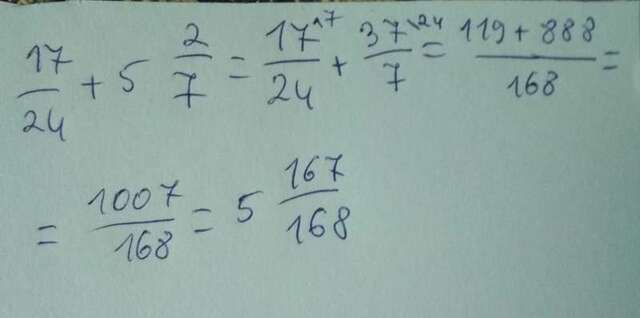 17/24 + 5 2/7 = 17\7/24 + 37\24/7 = 119 + 888/168 =
= 1007/168 = 5 167/168